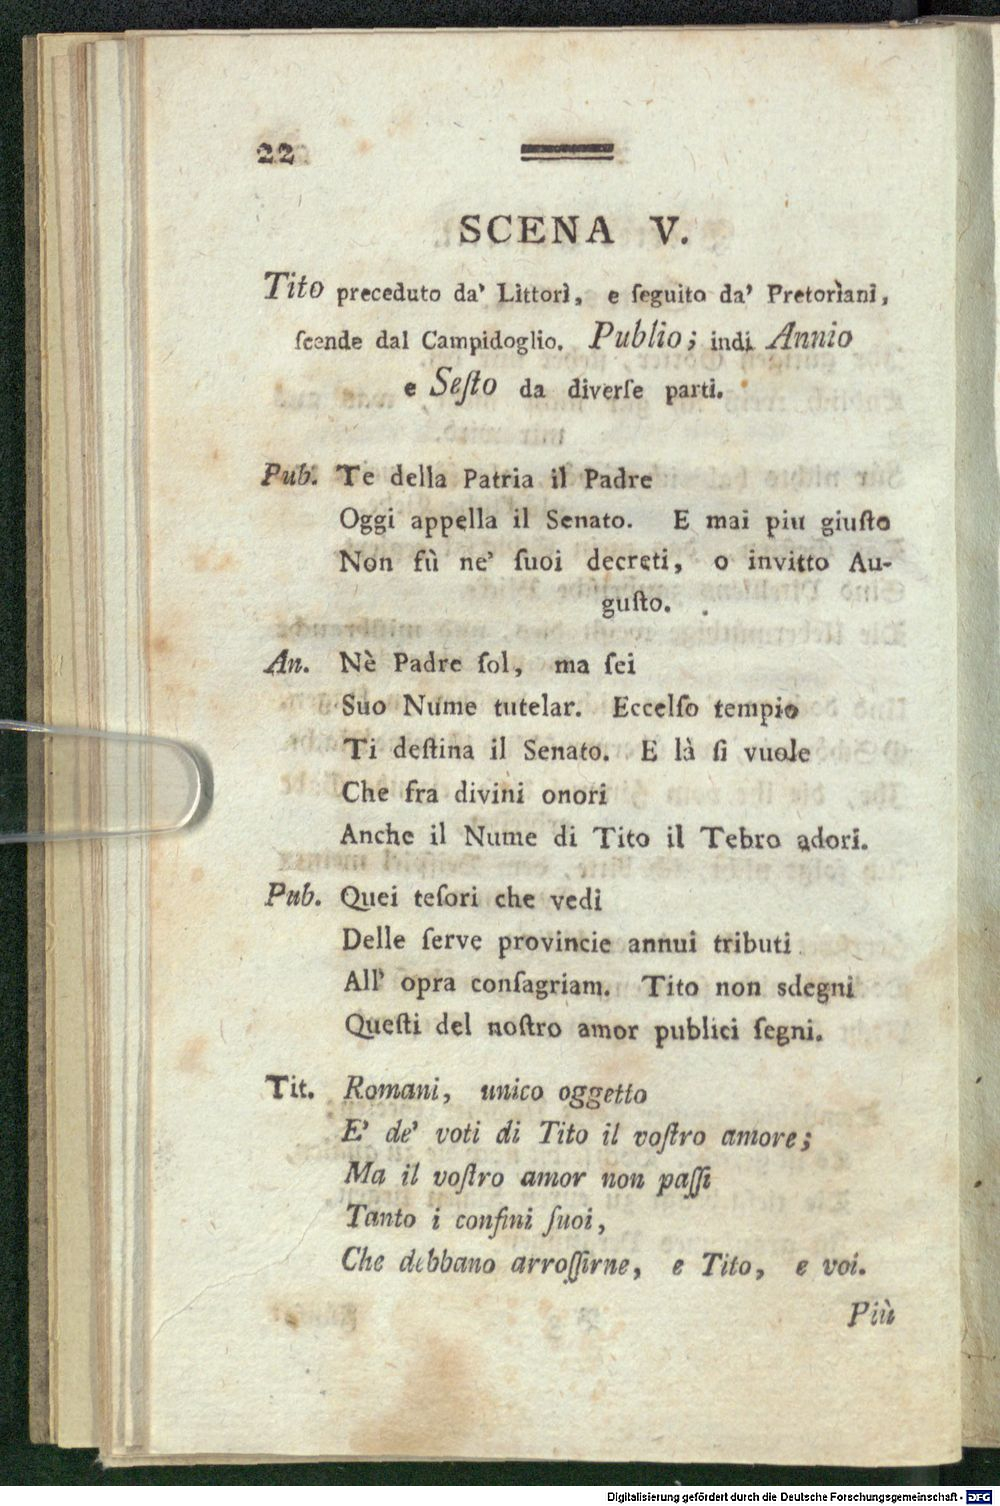 22
SCENA V.
Tito preceduto da' Littori, e ſeguito da' Pretoriani,
ſcende dal Campidoglio. Publio; indi Annio
e Seſto da diverſe parti.
Pub. Te della Patria il Padre
Oggi appella il Senato. E mai piu giuſto
Non fù ne' ſuoi decreti, o invitto Au-
guſto.
An. Nè Padre ſol, ma ſei
Suo Nume tutelar. Eccelſo tempio
Ti deſtina il Senato. E là ſi vuole
Che fra divini onori
Anche il Nume di Tito il Tebro adori.
Pub. Quei teſori che vedi
Delle ſerve provincie annui tributi
All' opra conſagriam. Tito non sdegni
Queſti del noſtro amor publici ſegni.
Tit. Romani, unico oggetto
E' de' voti di Tito il voſtro amore;
Ma il voſtro amor non paſſi
Tanto i confini ſuoi,
Che debbano arroſſirne, e Tito, e voi.
Più
Digitalisierung gefördert durch die Deutsche Forschungsgemeinschaft - DFG